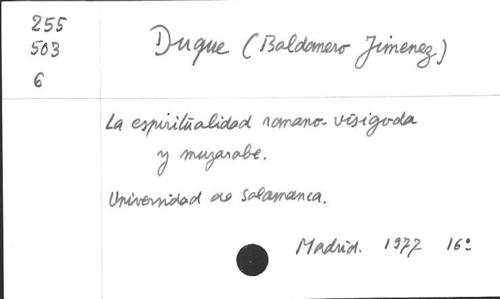 255
503
6
Duque (Baldomero Jimenez)
La espiritualidad romano-visigoda
y muzarabe.
Universidad de Salamanca.
Madrid. 1977 16º